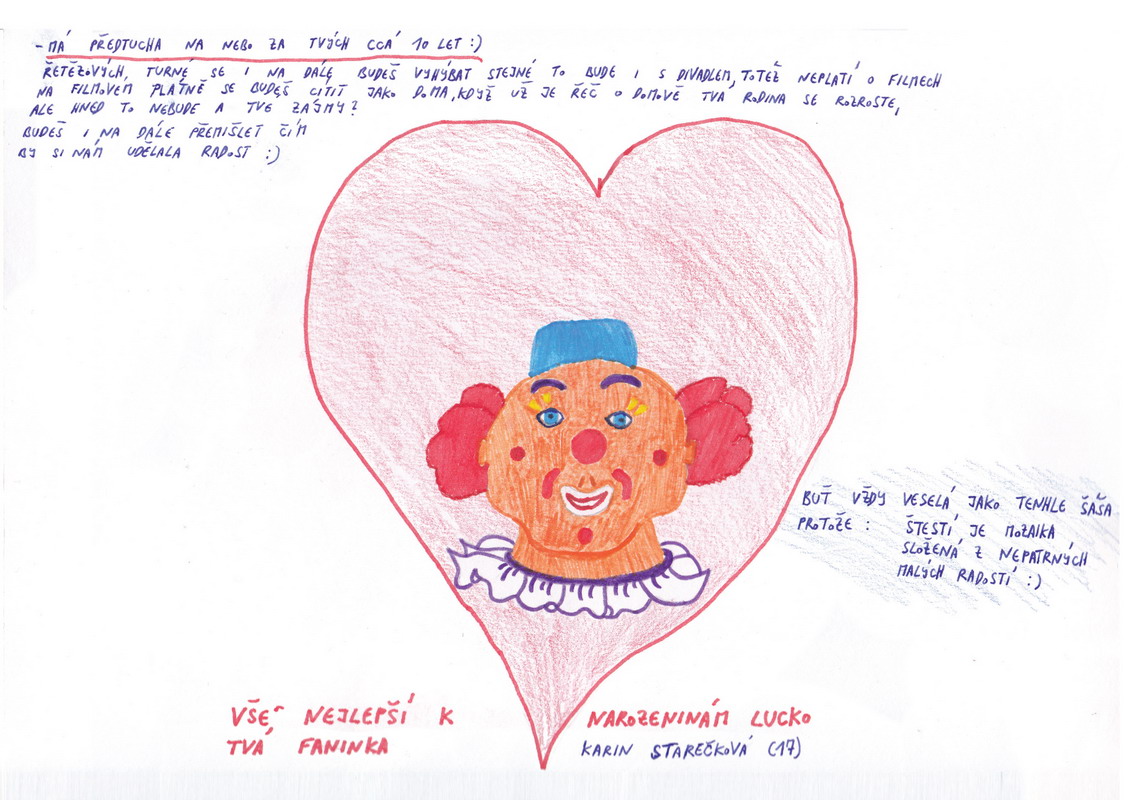 - MÁ PŘEDTUCHA NA NEBO ZA TVÝCH CCÁ 10 LET :)
ŘETĚZOVÝCH, TURNÉ SE I NA DÁLE BUDEŠ VYHÝBAT STEJNÉ TO BUDE I S DIVADLEM, TOTEŽ NEPLATÍ O FILMECH
NA FILMOVEM PLÁTNĚ SE BUDEŠ CÍTIT JAKO DOMA, KDYŽ UŽ JE ŘEČ O DOMOVĚ TVA RODINA SE ROZROSTE,
ALE HNED TO NEBUDE A TVÉ ZÁJMY?
BUDEŠ I NA DÁLE PŘEMIŠLET ČÍM
BY SI NÁM UDĚLALA RADOST :)
BUŤ VŽDY VESELÁ JAKO TENHLE ŠAŠA
PROTOŽE : ŠTESTÍ JE MOZAIKA
SLOŽENÁ Z NEPATRNÝCH
MALÝCH RADOSTÍ :)
VŠE NEJLEPŠÍ K NAROZENINÁM LUCKO
TVÁ FANINKA KARIN STAREČKOVÁ (17)